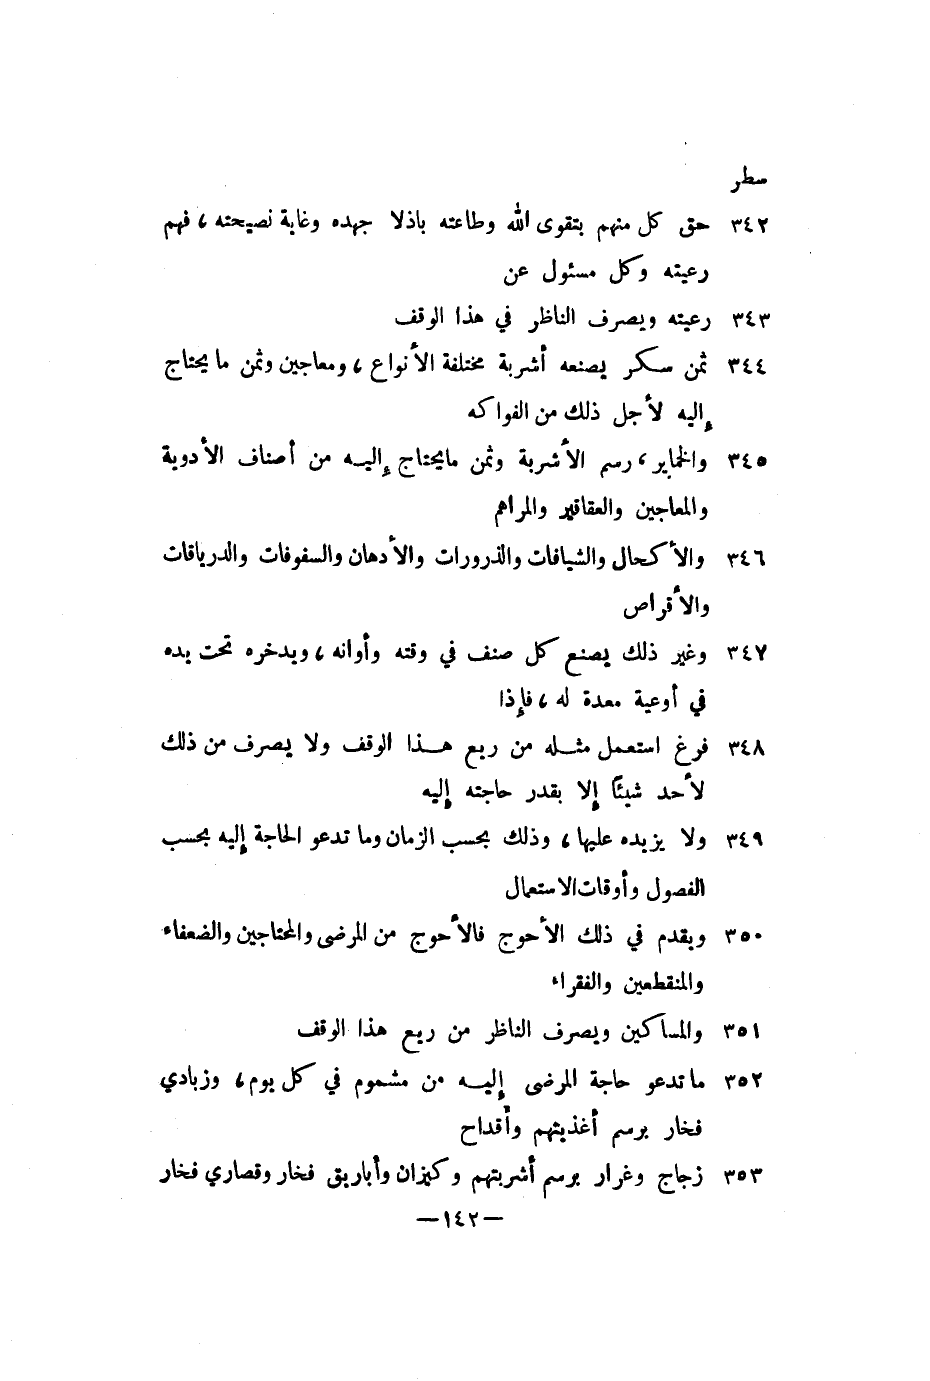 سطر
٣٤٢ حق كل منهم بتقوى الله وطاعته باذلا جهده وغاية نصيحته ، فهم
رعيته وكل مسئول عن
٣٤٣ رعيته ويصرف الناظر في هذا الوقف
٣٤٤ ثمن سكر يصنعه أشربة مختلفة الأنواع ، ومعاجين وثمن ما يحتاج
إليه لأجل ذلك من الفواكه
٣٤٥ والخماير ، رسم الأشربة وثمن مايحتاج إليه من أصناف الأدوية
والمعاجين والعقاقير والمراهم
٣٤٦ والأكحال والشيافات والذرورات والأدهان والسفوفات والدرياقات
والأقراص
٣٤٧ وغير ذلك يصنع كل صنف في وقته وأوانه ، ويدخره تحت يده
في أوعية معدة له ، فإذا
٣٤٨ فرغ استعمل مثله من ريع هذا الوقف ولا يصرف من ذلك
لأحد شيئاً إلا بقدر حاجته إليه
٣٤٩ ولا يزيده عليها ، وذلك بحسب الزمان وما تدعو الحاجة إليه بحسب
الفصول وأوقات الاستعمال
٣٥٠ ويقدم في ذلك الأحوج فالأحوج من المرضى والمحتاجين والضعفاء
والمنقطعين والفقراء
٣٥١ والمساكين ويصرف الناظر من ريع هذا الوقف
٣٥٢ ما تدعو حاجة المرضى إليه من مشموم في كل يوم ، وزبادي
فخار برسم أغذيتهم وأقداح
٣٥٣ زجاج وغرار برسم أشربتهم وكيزان وأباريق فخار وقصاري فخار
— ١٤٢ —